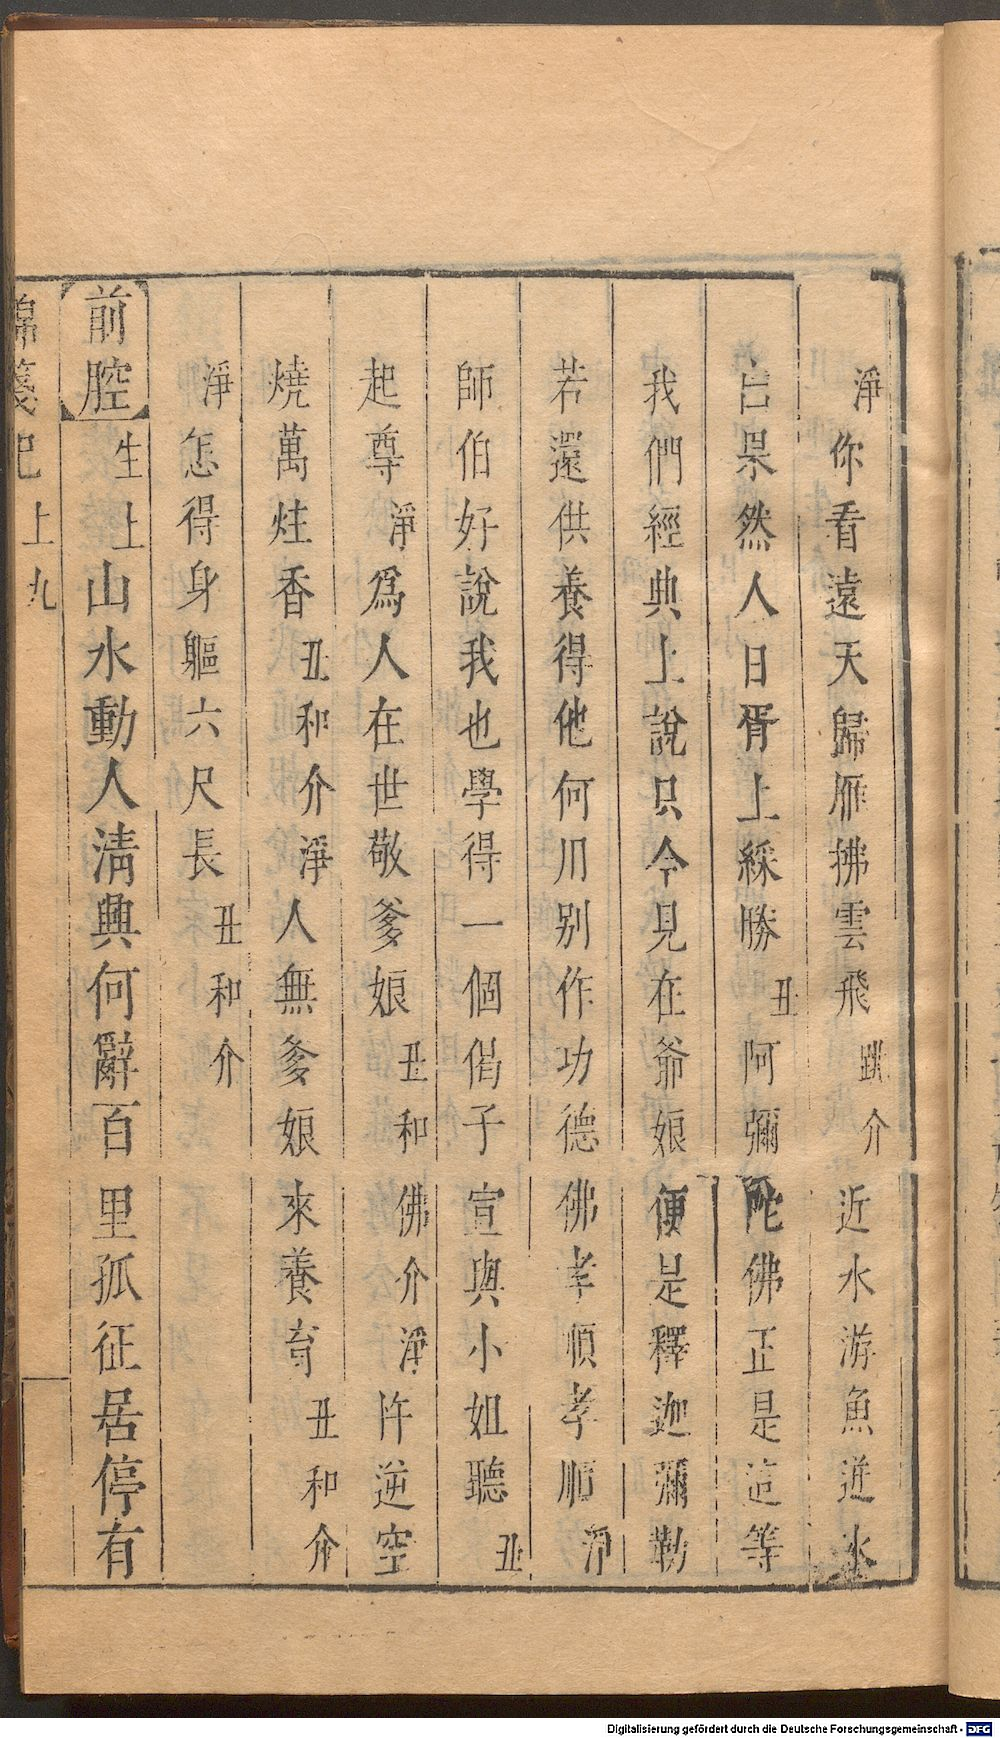 淨你看遠天歸雁拂雲飛跳介近水游魚逆水
古果然人日胥上綵勝丑阿彌陀佛正是這等
我們經典上說只今見在爺娘便是釋迦彌勒
若還供養得他何用别作功德佛孝順孝順淨
師伯好說我也學得一個偈子宣與小姐聽丑
起尊淨爲人在世敬爹娘丑和佛介淨忤逆空
燒萬炷香丑和介淨人無爹娘來養育丑和介
淨怎得身軀六尺長丑和介
前腔生上山水動人清興何辭百里孤征居停有
錦箋記上九
Digitalisierung gefördert durch die Deutsche Forschungsgemeinschaft - DFG